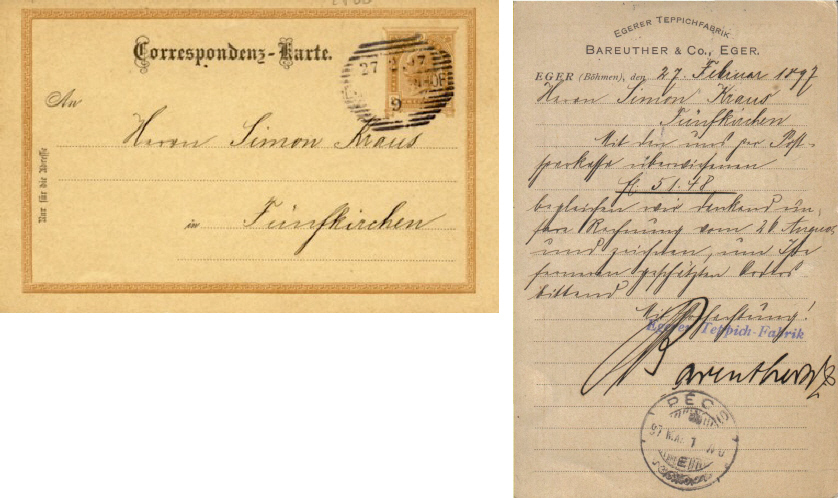 Correspondenz-Karte.
27 2 97
9
An
Herrn Simon Kraus
in Fünfkirchen
Nur für die Adresse
EGERER TEPPICHFABRIK
BAREUTHER & Co., EGER.
EGER (Böhmen), den 27. Februar 1897
Herrn Simon Kraus
Fünfkirchen
Mit den uns per Post-
sparkasse überwiesenen
fl 51.48
begleichen wir dankend un-
sere Rechnung vom 20 August
und zeichten, um Ihre
ferneren geschätzten Ordres
bittend
Mit Hochachtung!
Egerer Teppich-Fabrik
Bareuther & Co
PÉCS
97 MÁR 1